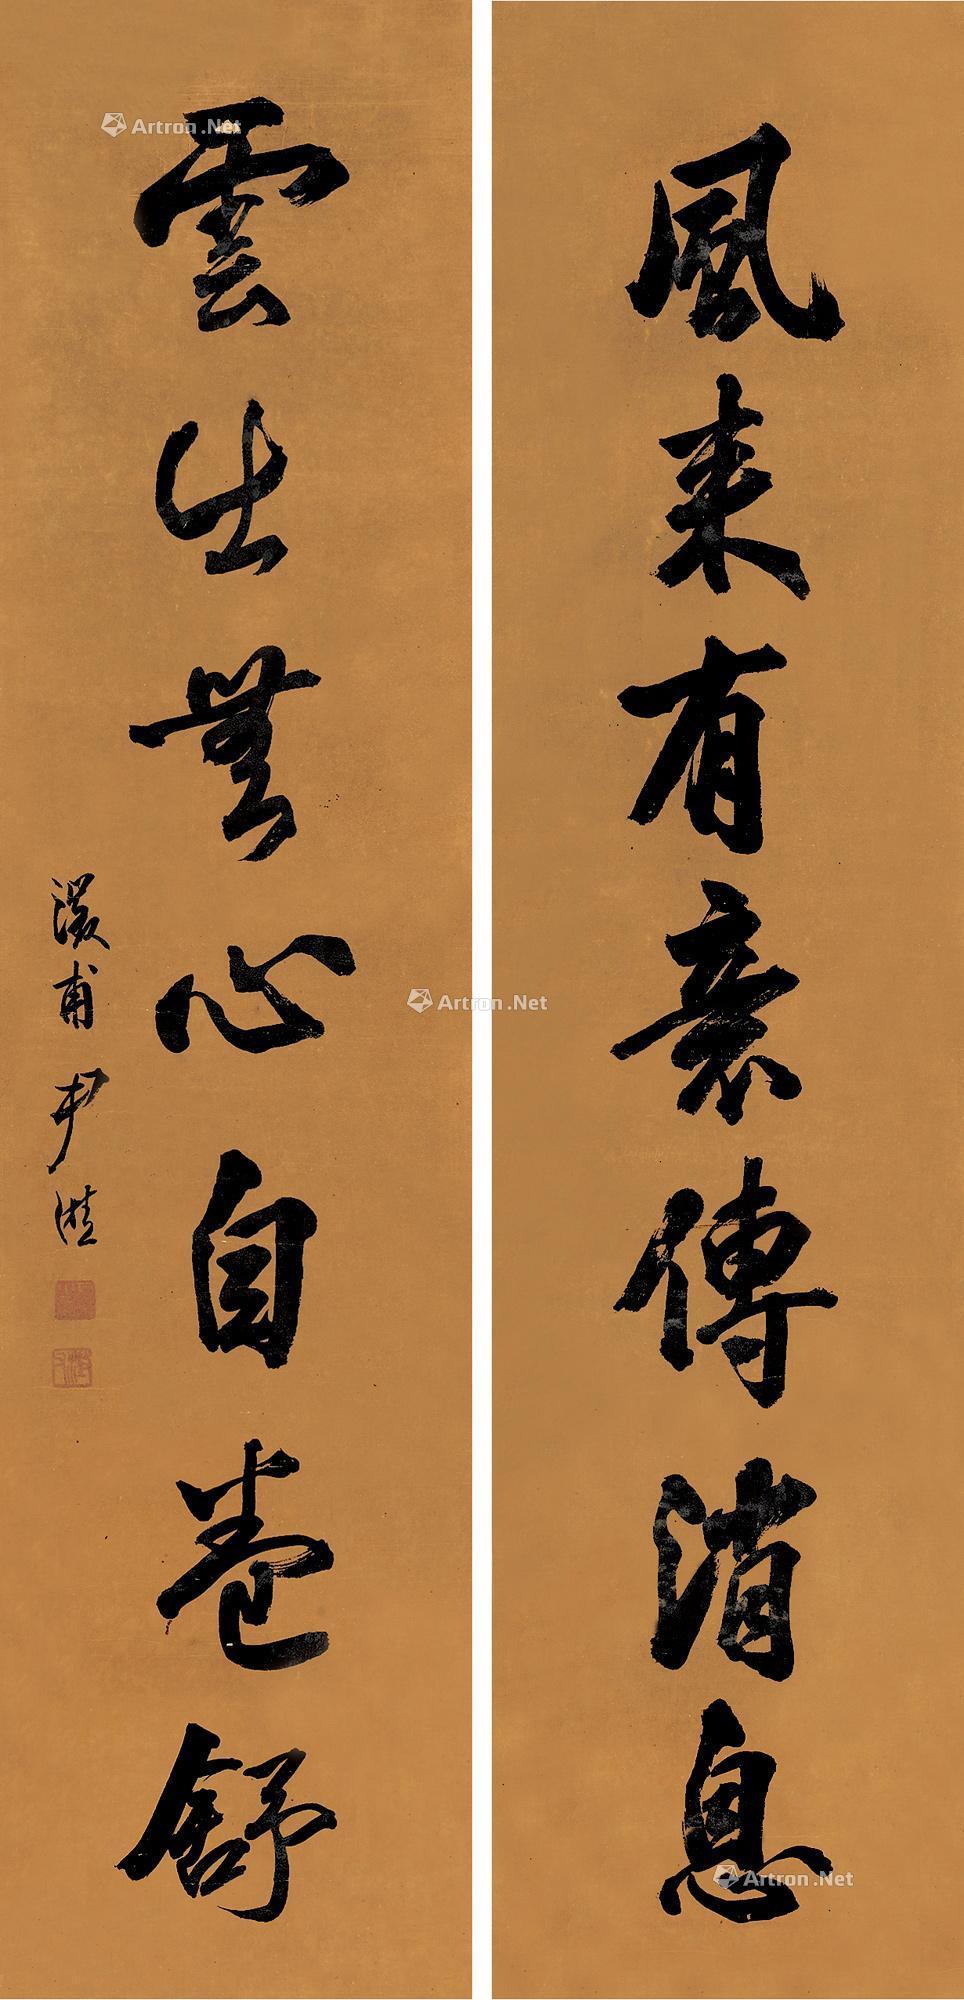 風来有意傳消息
雲出無心自卷舒
甫尹
Artron.Net
Artron.Net
Artron.Net